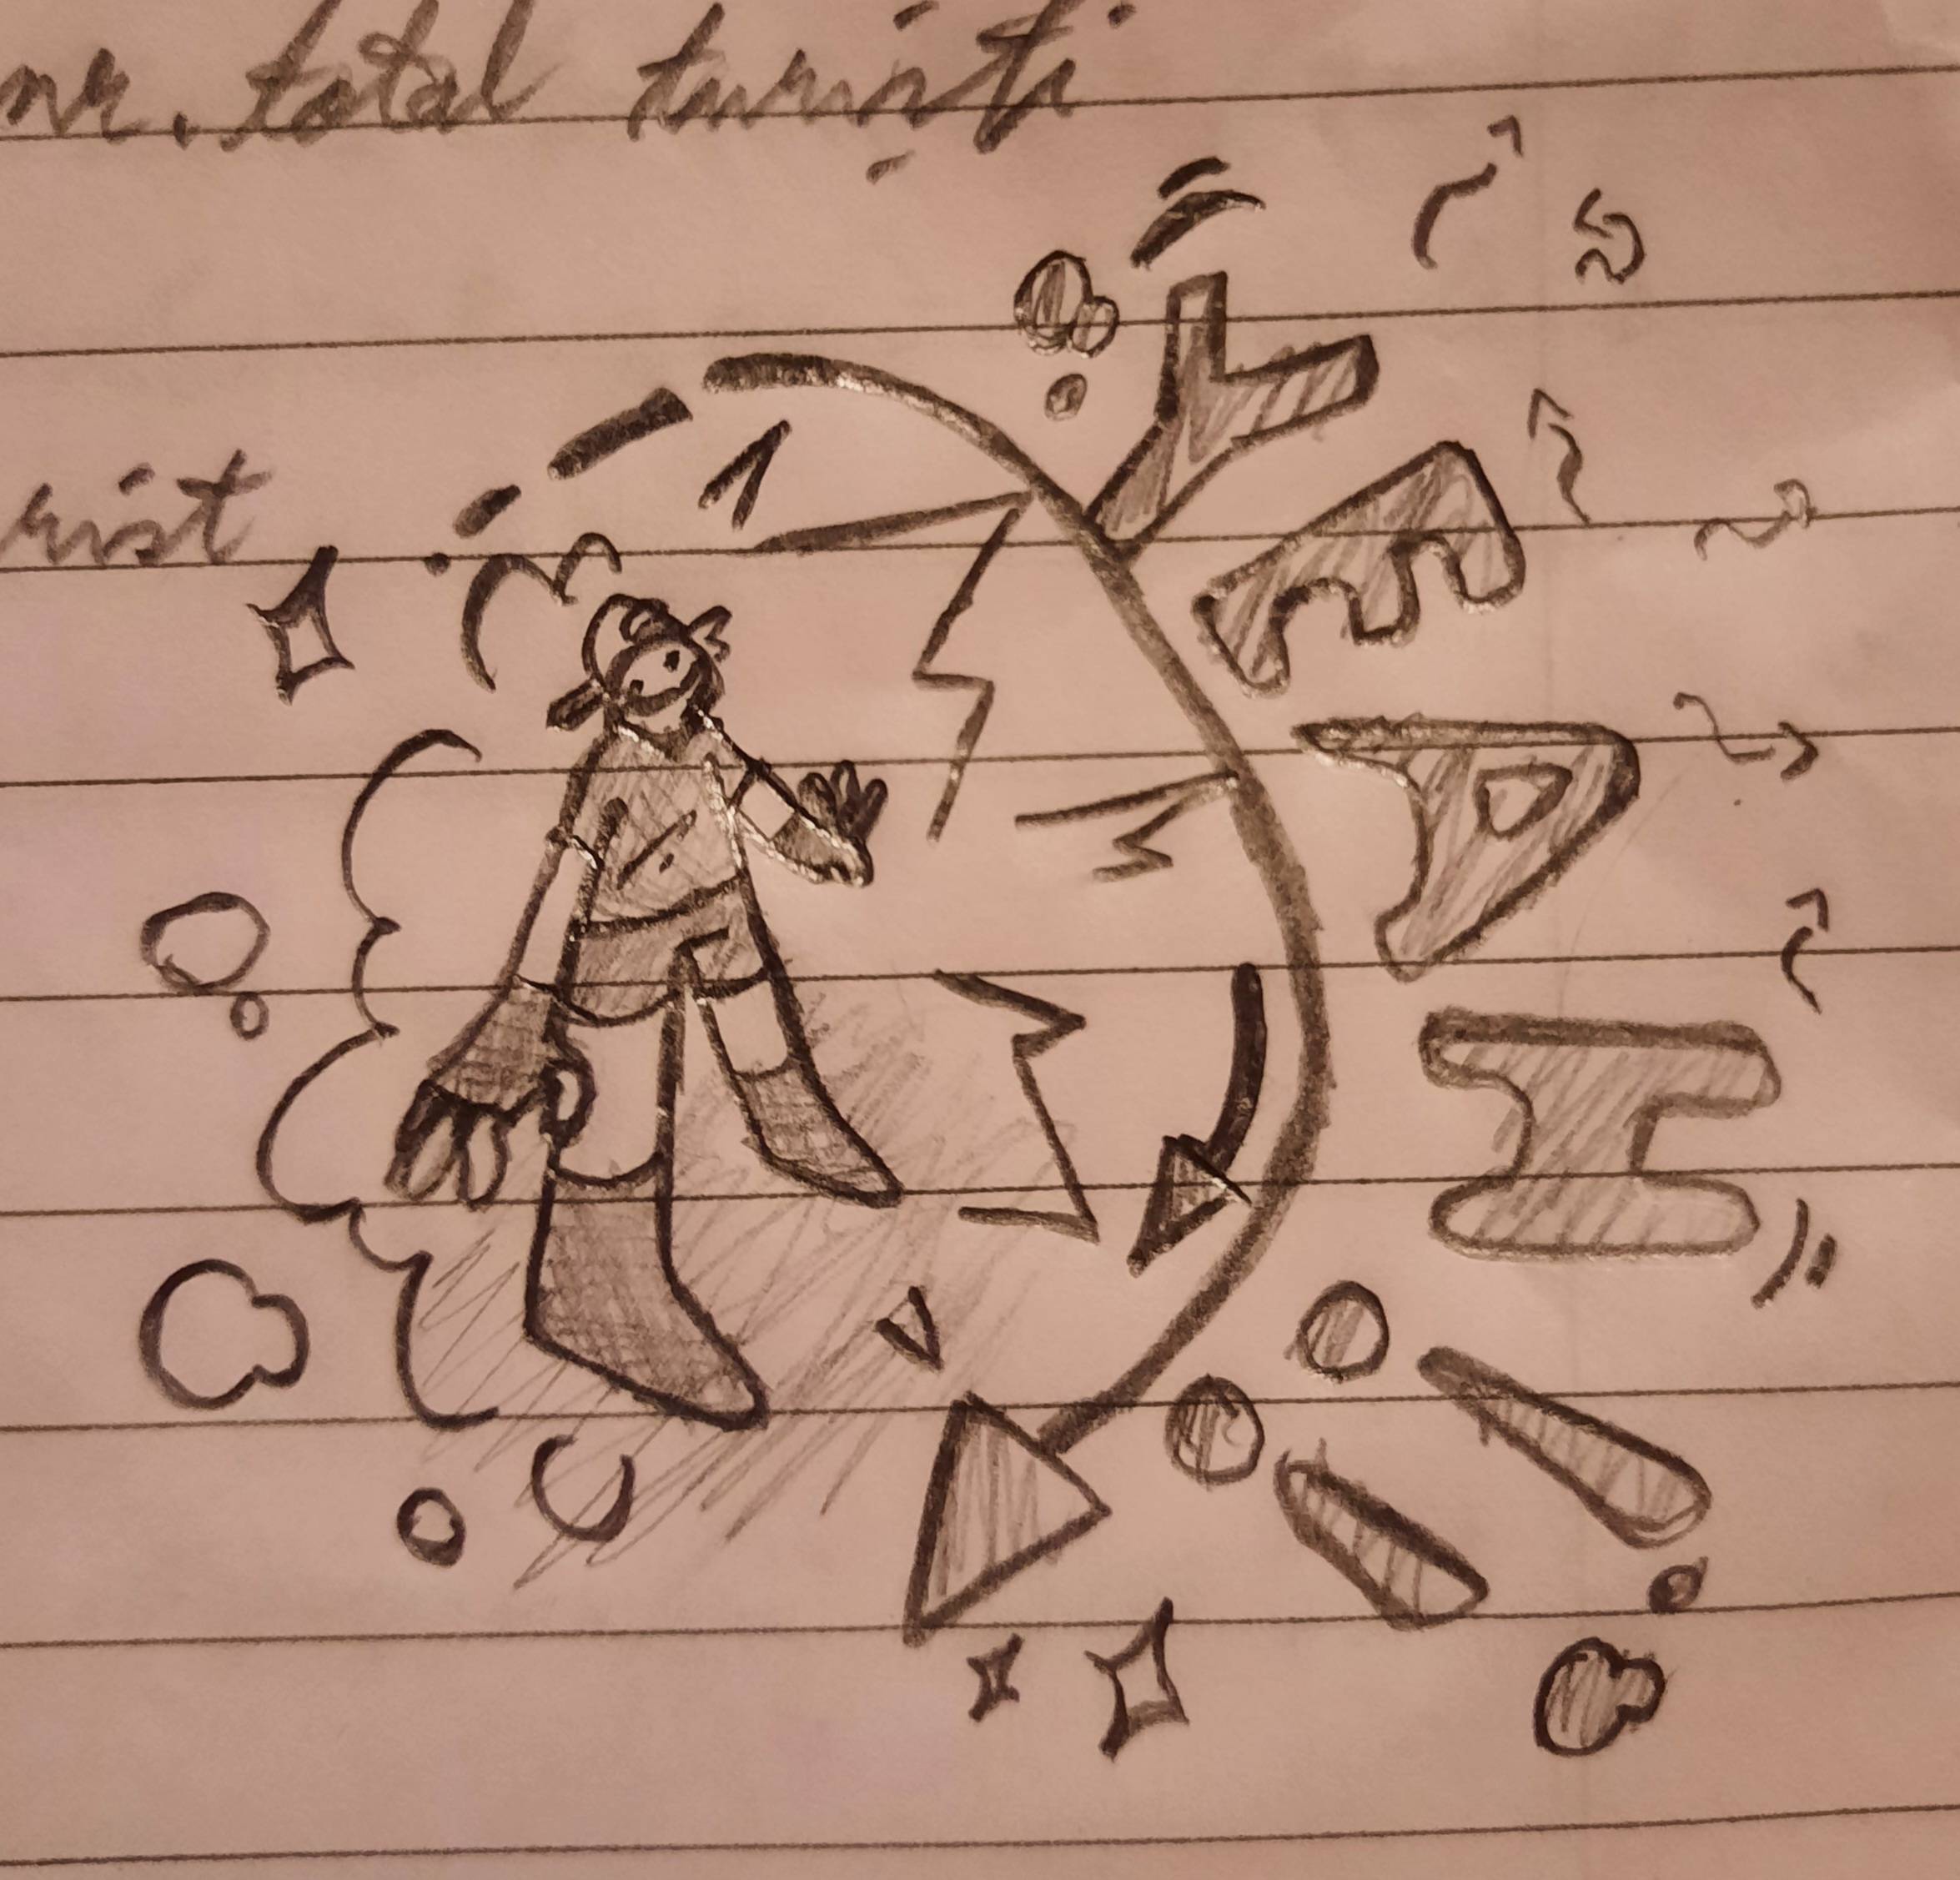 nr. total turiști
rist
YEAH!!